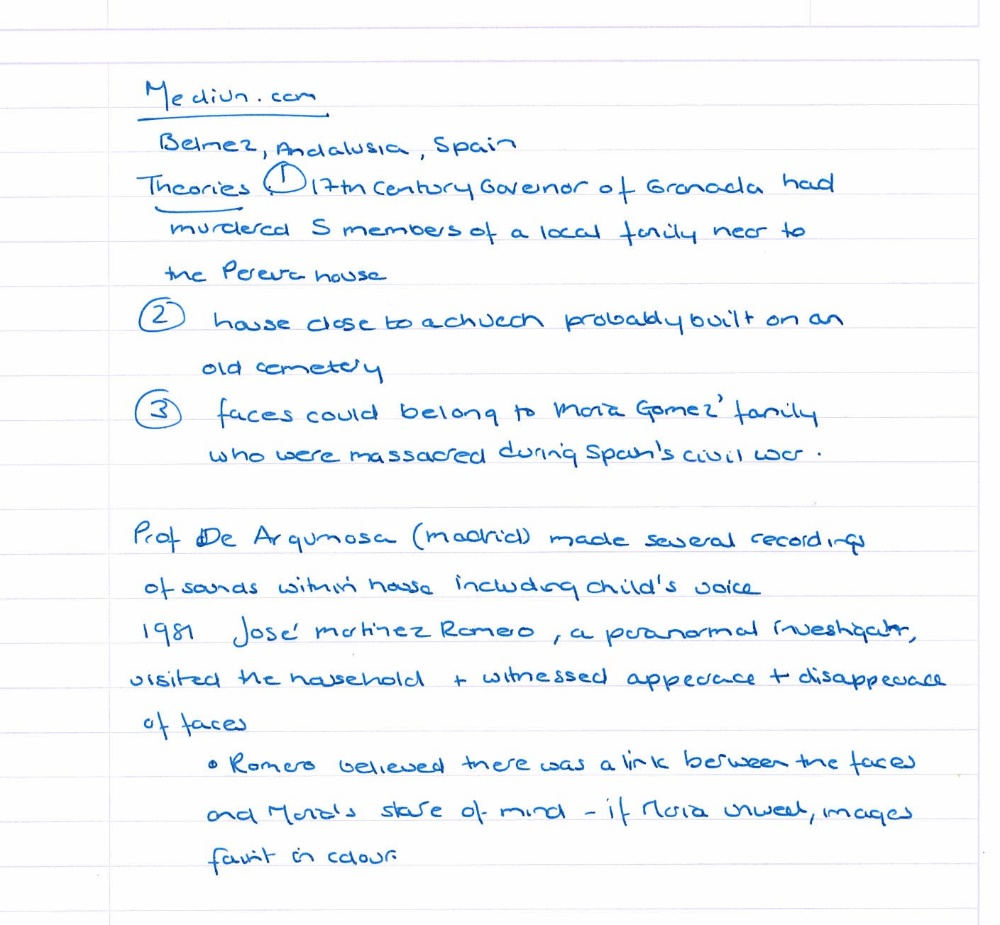 Medium.com
Belmez, Andalusia, Spain
Theories ① 17th Century Governor of Granada had
murdered 5 members of a local family near to
the Pereira house
② house close to a church probably built on an
old cemetery
③ faces could belong to Maria Gomez' family
who were massacred during Spain's civil war.
Prof De Argumosa (madrid) made several recordings
of sounds within house including child's voice
1981 José martinez Romero, a paranormal investigator,
visited the household + witnessed appearace + disappearace
of faces
• Romero believed there was a link between the faces
and Maria's state of mind - if Maria unwell, images
faint in colour.